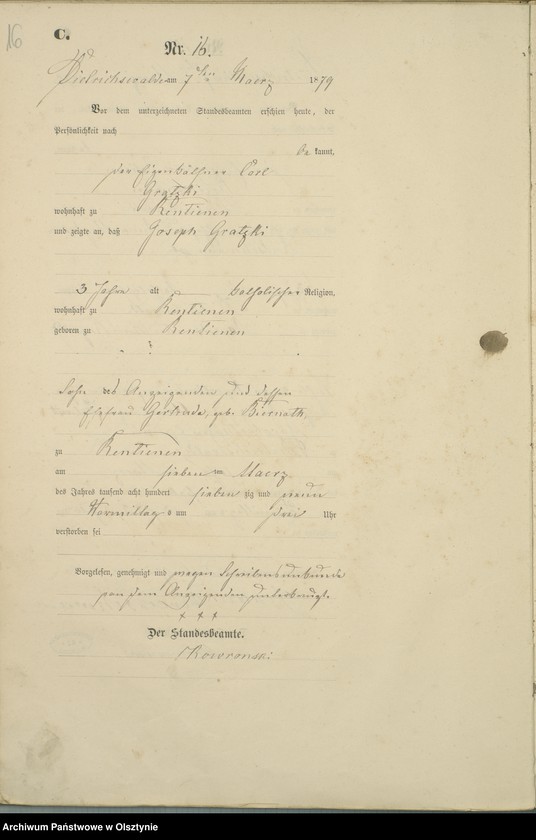 16
C.
Nr. 16.
Dietrichswalde am 7ten Maerz 1879
Vor dem unterzeichneten Standesbeamten erschien heute, der
Persönlichkeit nach
be kannt,
der Eigenkäthner Carl
Gratzki
wohnhaft zu Rentienen
und zeigte an, daß Joseph Gratzki
3 Jahre alt katholischer Religion,
wohnhaft zu Rentienen
geboren zu Rentienen
Sohn des Anzeigenden und dessen
Ehefrau Gertrude, geb. Biernath,
zu Rentienen
am sieben ten Maerz
des Jahres tausend acht hundert sieben zig und neun
Vormittags um drei Uhr
verstorben sei
Vorgelesen, genehmigt und wegen Schreibensunkunde
von dem Anzeigenden unterkreuzt.
+ + +
Der Standesbeamte.
Skowronski
Archiwum Państwowe w Olsztynie